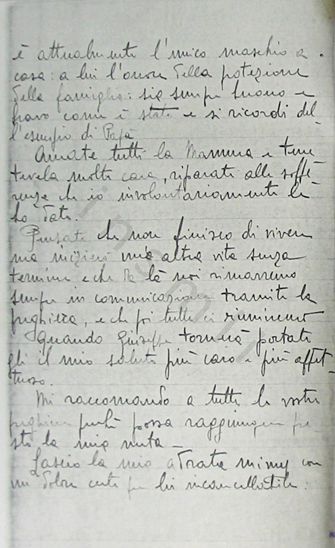 è attualmente l'unico maschio a
casa: a lui l'onore della protezione
della famiglia: sia sempre buono e
bravo come è stato e si ricordi del
l'esempio di Papà.
Amate tutti la Mamma e tene
tevela molto cara, riparate alle soffe
renze che io involontariamente le
ho dato.
Pensate che non finisco di vivere
ma inizierò una altra vita senza
termine e che di là noi rimarremo
sempre in comunicazione tramite la
preghiera, e che poi tutti ci riuniremo
quando Giuseppe tornerà portate
gli il mio saluto più caro e più affet
tuoso.
Mi raccomando a tutti le vostre
preghiere perché possa raggiungere pre
sto la mia meta_
Lascio la mia adorata Mimy con
un dolore certo per lei incancellabile.